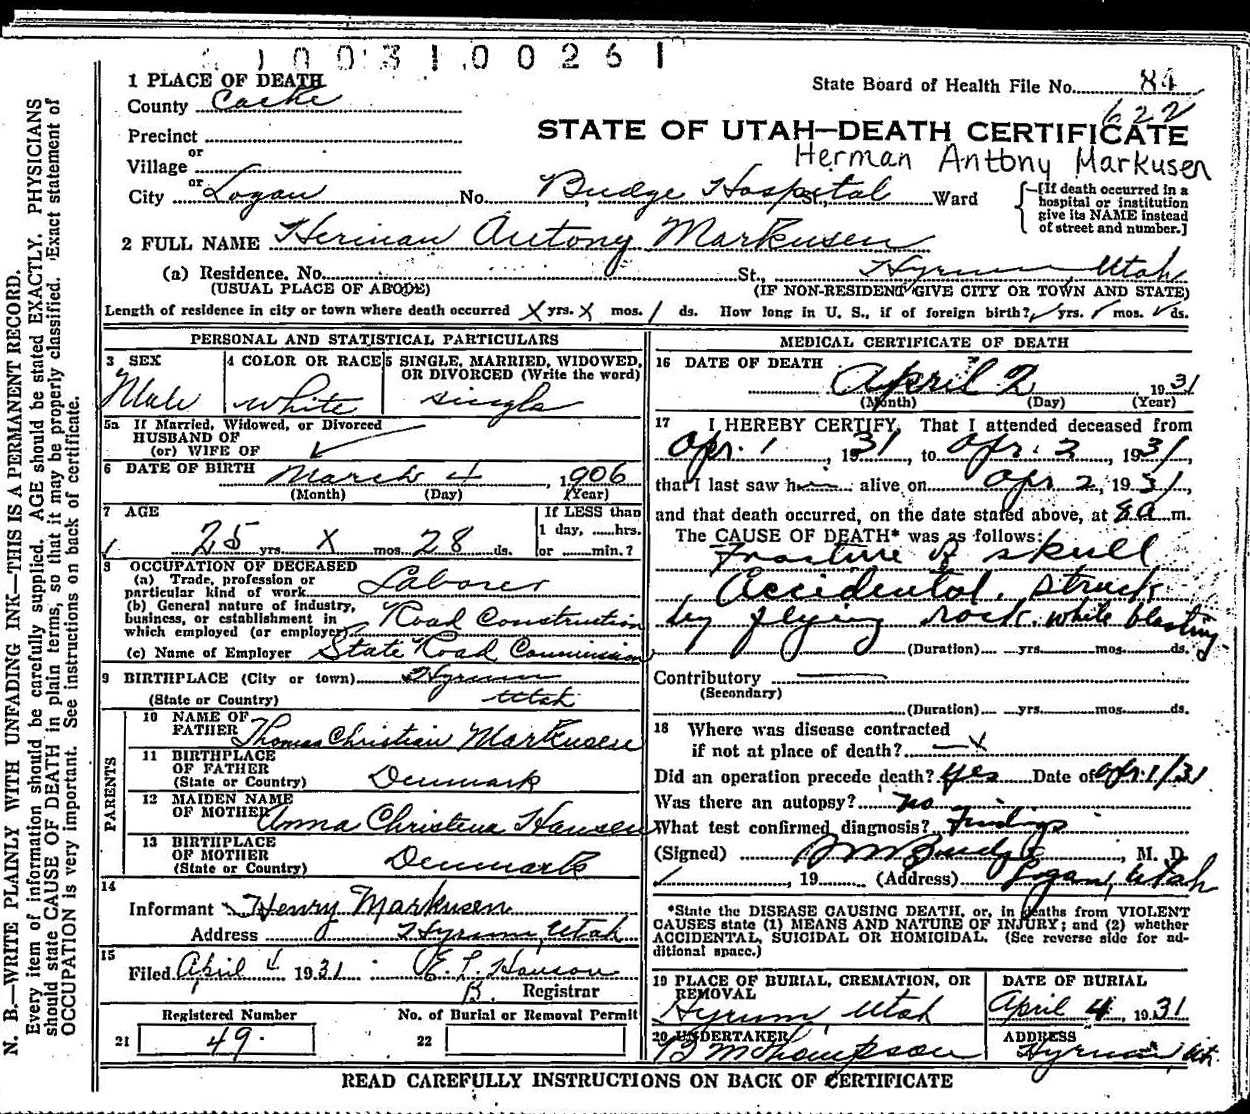 1003100261
1 PLACE OF DEATH
State Board of Health File No. 84
County Cache
622
Precinct
STATE OF UTAH—DEATH CERTIFICATE
or
Herman Antony Markusen
Village
or
City Logan No. Budge Hospital St., Ward
{[If death occurred in a hospital or institution give its NAME instead of street and number.]
2 FULL NAME Herman Antony Markusen
(a) Residence, No. St., Hyrum, Utah
(USUAL PLACE OF ABODE) (IF NON-RESIDENT GIVE CITY OR TOWN AND STATE)
Length of residence in city or town where death occurred X yrs. X mos. 1 ds. How long in U. S., if of foreign birth? yrs. mos. ds.
PERSONAL AND STATISTICAL PARTICULARS
3 SEX
Male
4 COLOR OR RACE
white
5 SINGLE, MARRIED, WIDOWED,
OR DIVORCED (Write the word)
single
5a If Married, Widowed, or Divorced
HUSBAND OF
(or) WIFE OF
6 DATE OF BIRTH March 4, 1906
(Month) (Day) (Year)
7 AGE
25 yrs. X mos. 28 ds.
If LESS than
1 day, ......hrs.
or ......min.?
8 OCCUPATION OF DECEASED
(a) Trade, profession or
particular kind of work Laborer
(b) General nature of industry,
business, or establishment in
which employed (or employer) Road Construction
(c) Name of Employer State Road Commission
9 BIRTHPLACE (City or town) Hyrum
(State or Country) Utah
PARENTS
10 NAME OF
FATHER Thomas Christian Markusen
11 BIRTHPLACE
OF FATHER
(State or Country) Denmark
12 MAIDEN NAME
OF MOTHER Anna Christina Hansen
13 BIRTHPLACE
OF MOTHER
(State or Country) Denmark
14
Informant Henry Markusen
Address Hyrum, Utah
15
Filed April 4 1931 E. L. Hanson
B. Registrar
Registered Number No. of Burial or Removal Permit
21 49. 22
MEDICAL CERTIFICATE OF DEATH
16 DATE OF DEATH
April 2 1931
(Month) (Day) (Year)
17 I HEREBY CERTIFY, That I attended deceased from
Apr. 1, 1931, to Apr. 2, 1931,
that I last saw h alive on Apr 2, 1931,
and that death occurred, on the date stated above, at 8 a m.
The CAUSE OF DEATH* was as follows:
Fracture of skull
Accidental. struck
by flying rock while blasting
(Duration) yrs. mos. ds.
Contributory
(Secondary)
(Duration) yrs. mos. ds.
18 Where was disease contracted
if not at place of death? — X
Did an operation precede death? yes Date of Apr. 1/31
Was there an autopsy? no
What test confirmed diagnosis? Findings
(Signed) Budge, M. D.
, 19 (Address) Logan, Utah
*State the DISEASE CAUSING DEATH, or, in deaths from VIOLENT
CAUSES state (1) MEANS AND NATURE OF INJURY; and (2) whether
ACCIDENTAL, SUICIDAL OR HOMICIDAL. (See reverse side for ad-
ditional space.)
19 PLACE OF BURIAL, CREMATION, OR
REMOVAL
Hyrum, Utah
DATE OF BURIAL
April 4, 1931
20 UNDERTAKER
B M Thompson
ADDRESS
Hyrum, Ut.
READ CAREFULLY INSTRUCTIONS ON BACK OF CERTIFICATE
N. B.—WRITE PLAINLY WITH UNFADING INK—THIS IS A PERMANENT RECORD.
Every item of information should be carefully supplied. AGE should be stated EXACTLY. PHYSICIANS
should state CAUSE OF DEATH in plain terms, so that it may be properly classified. Exact statement of
OCCUPATION is very important. See instructions on back of certificate.